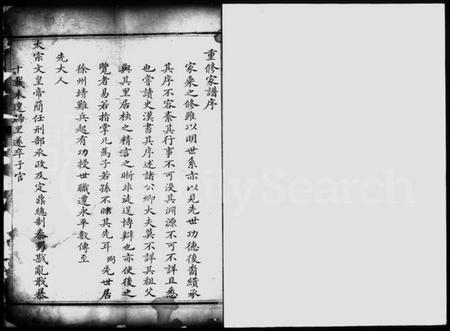 重修家譜序
家乘之修雖以明世系亦以見先世功德後裔纘承
其序不容紊其行事不可沒其淵源不可不詳且悉
也嘗讀史漢書其序述諸公卿大夫莫不詳其祖父
與其里居核之精言之晰非徒逞博辯也亦使後之
覽者易若指掌凡為子若孫不昧其先耳 先世居
徐州靖難兵起有功授世職遭永平數傳至
先大人
太宗文皇帝簡任刑部承政及定鼎總制秦蜀戡亂戢暴
十載未遑歸里遂卒于官
FamilySearch